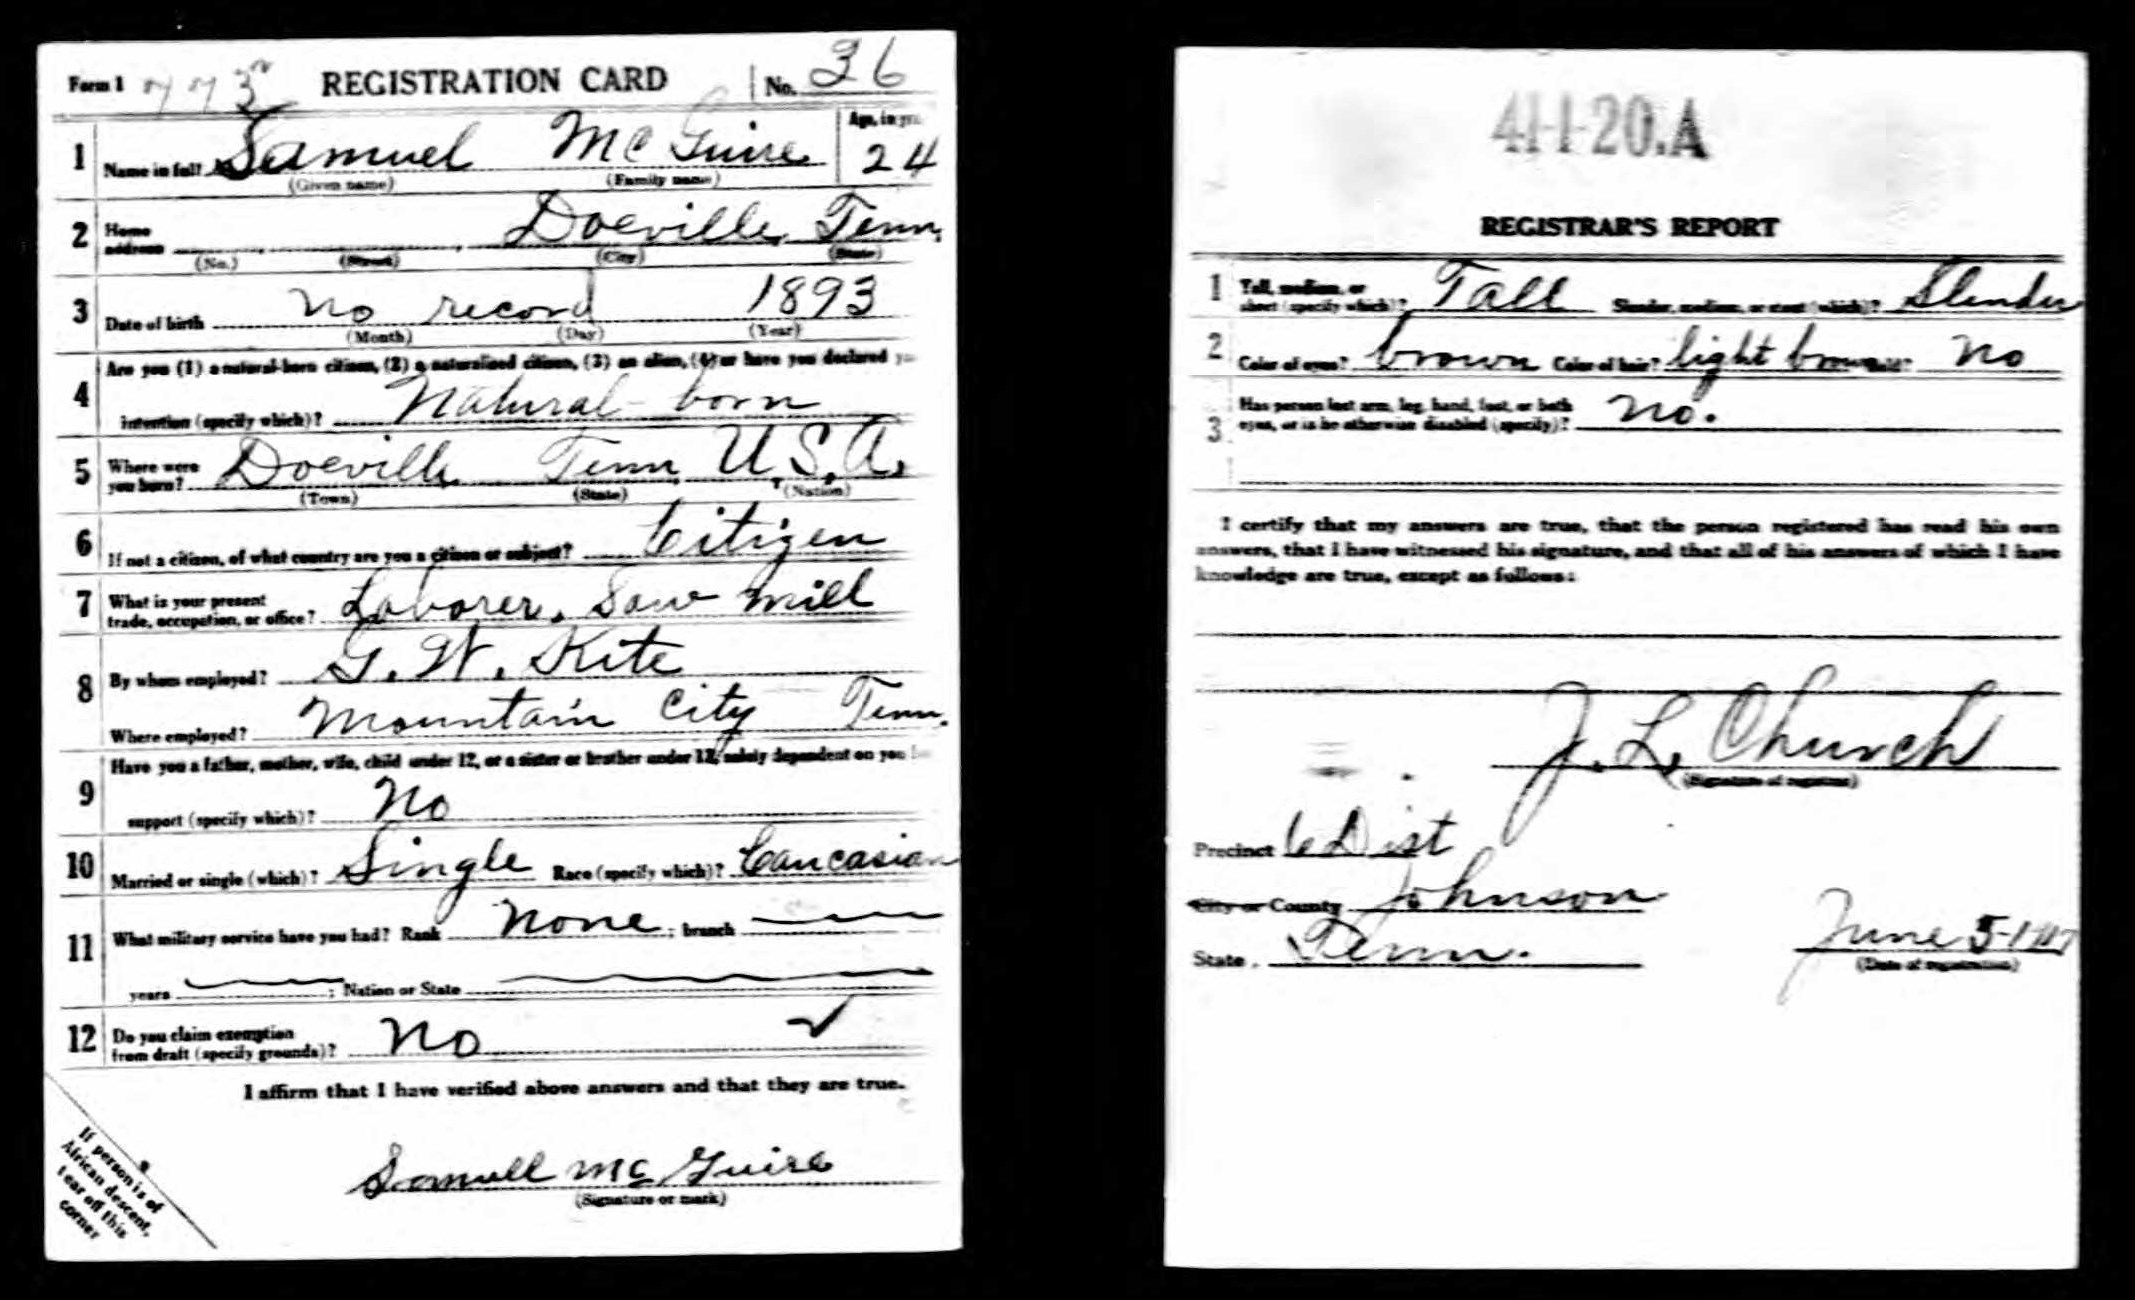 Form 1 773 REGISTRATION CARD No. 36
1 Name in full Samuel McGuire Age, in yrs. 24
(Given name) (Family name)
2 Home address Doeville, Tenn.
(No.) (Street) (City) (State)
3 Date of birth no record 1893
(Month) (Day) (Year)
4 Are you (1) a natural-born citizen, (2) a naturalized citizen, (3) an alien, (4) or have you declared your
intention (specify which)? Natural-born
5 Where were you born? Doeville Tenn, U.S.A.
(Town) (State) (Nation)
6 If not a citizen, of what country are you a citizen or subject? Citizen
7 What is your present trade, occupation, or office? Laborer, Saw mill
8 By whom employed? G. W. Kite
Where employed? Mountain City Tenn.
9 Have you a father, mother, wife, child under 12, or a sister or brother under 12, solely dependent on you for
support (specify which)? No
10 Married or single (which)? Single Race (specify which)? Caucasian
11 What military service have you had? Rank None; branch
years ; Nation or State
12 Do you claim exemption from draft (specify grounds)? No
I affirm that I have verified above answers and that they are true.
Samuell McGuire
(Signature or mark)
If person is of
African descent,
tear off this
corner
41-1-20.A
REGISTRAR'S REPORT
1 Tall, medium, or short (specify which)? Tall Slender, medium, or stout (which)? Slender
2 Color of eyes? brown Color of hair? light brown Bald? No
3 Has person lost arm, leg, hand, foot, or both
eyes, or is he otherwise disabled (specify)? No.
I certify that my answers are true, that the person registered has read his own
answers, that I have witnessed his signature, and that all of his answers of which I have
knowledge are true, except as follows:
J. L. Church
(Signature of registrar)
Precinct 6 Dist
City or County Johnson
State Tenn. June 5-1917
(Date of registration)